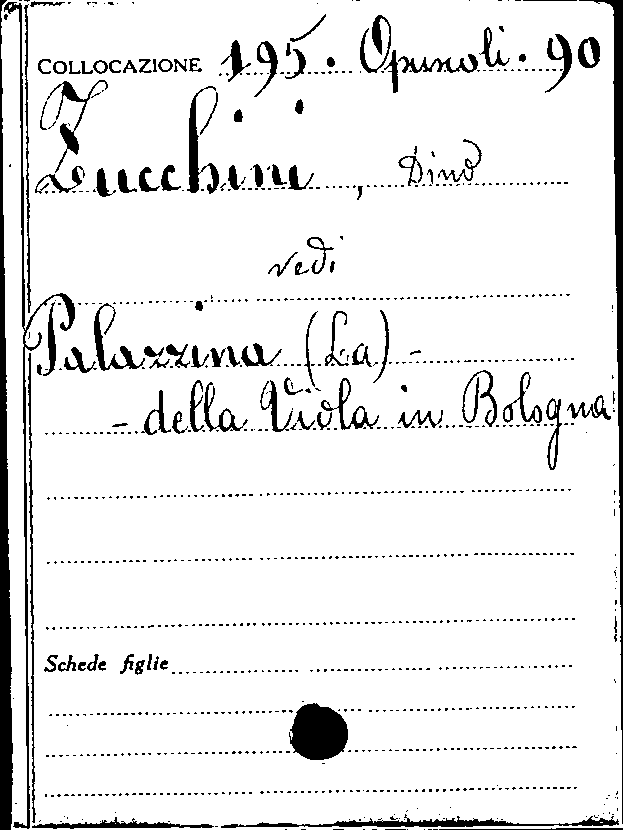 COLLOCAZIONE 195. Opuscoli. 90
Zucchini, Dino
vedi
Palazzina (La) -
- della Viola in Bologna
Schede figlie